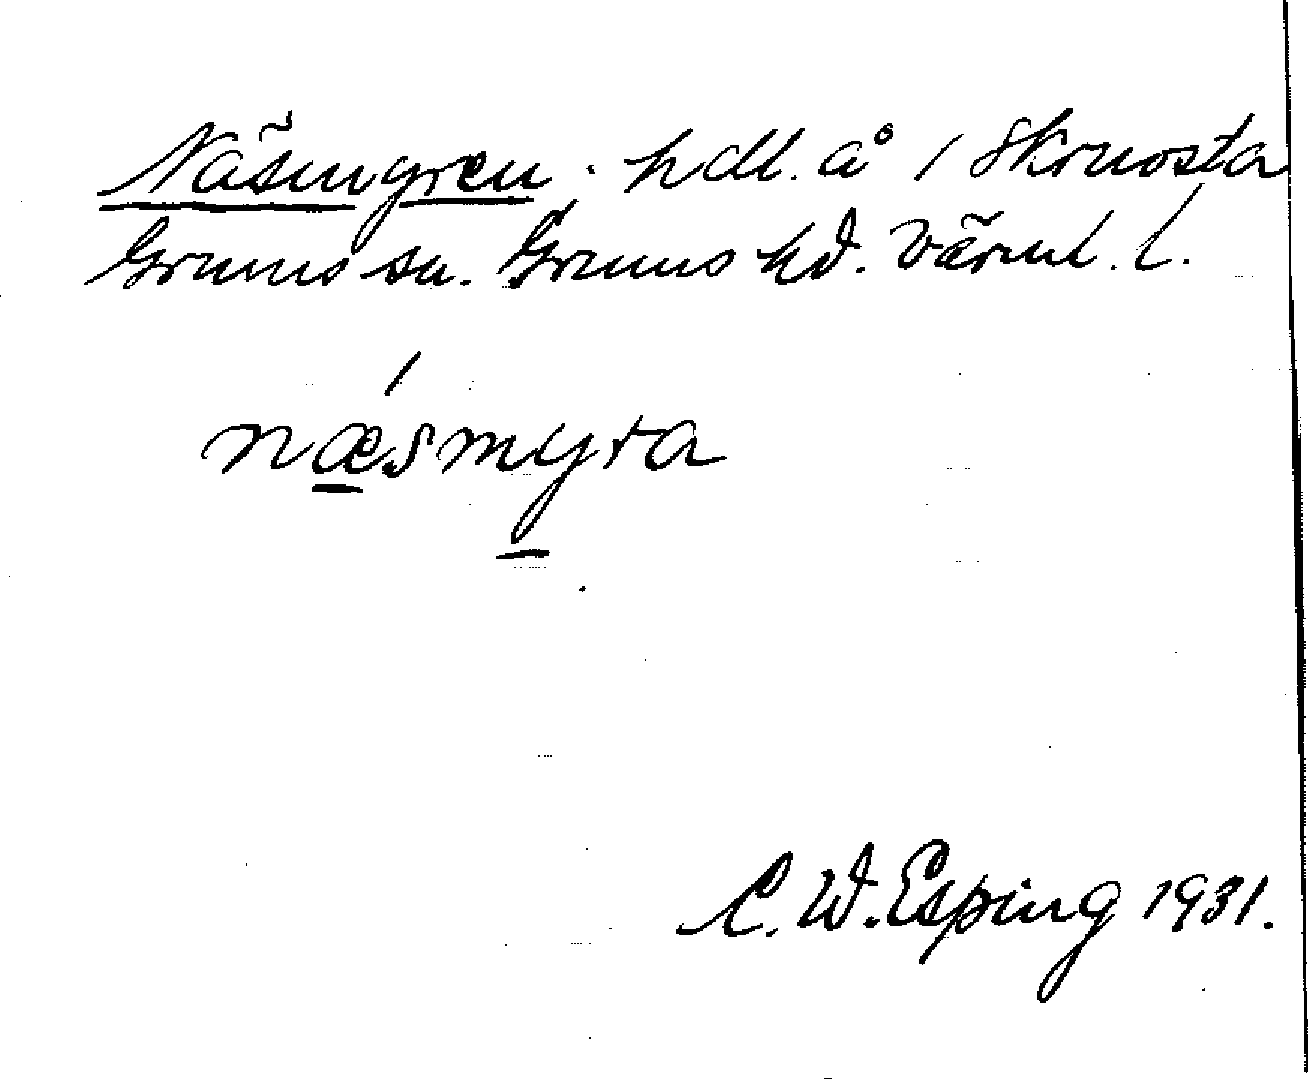 Näsmyren. hdl. å i Skruvsta
Grums sn. Grums hd. Värml. l.
næsmyra
C. W. Esping 1931.